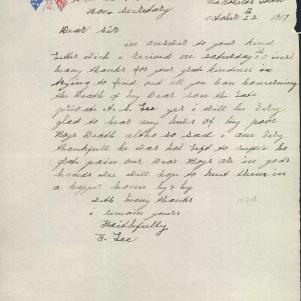 Hon. Secretary
October 22 1917
Dear Sir
in answer to your kind
letter wich i received on Saturday
many thanks for your great kindness in
trying to find out all you can concerning
the Death of my Dear son the Late
private A. S. Lee yes i will be very
glad to hear any news of my poor
Boys Death altho so sad i am very
thankfull he was not left to suffer no
great pain our Dear Boys are in gods
hands we will hope to meet them in
a happier home by & by
with many thanks
i remain yours
Faithfully
E. Lee